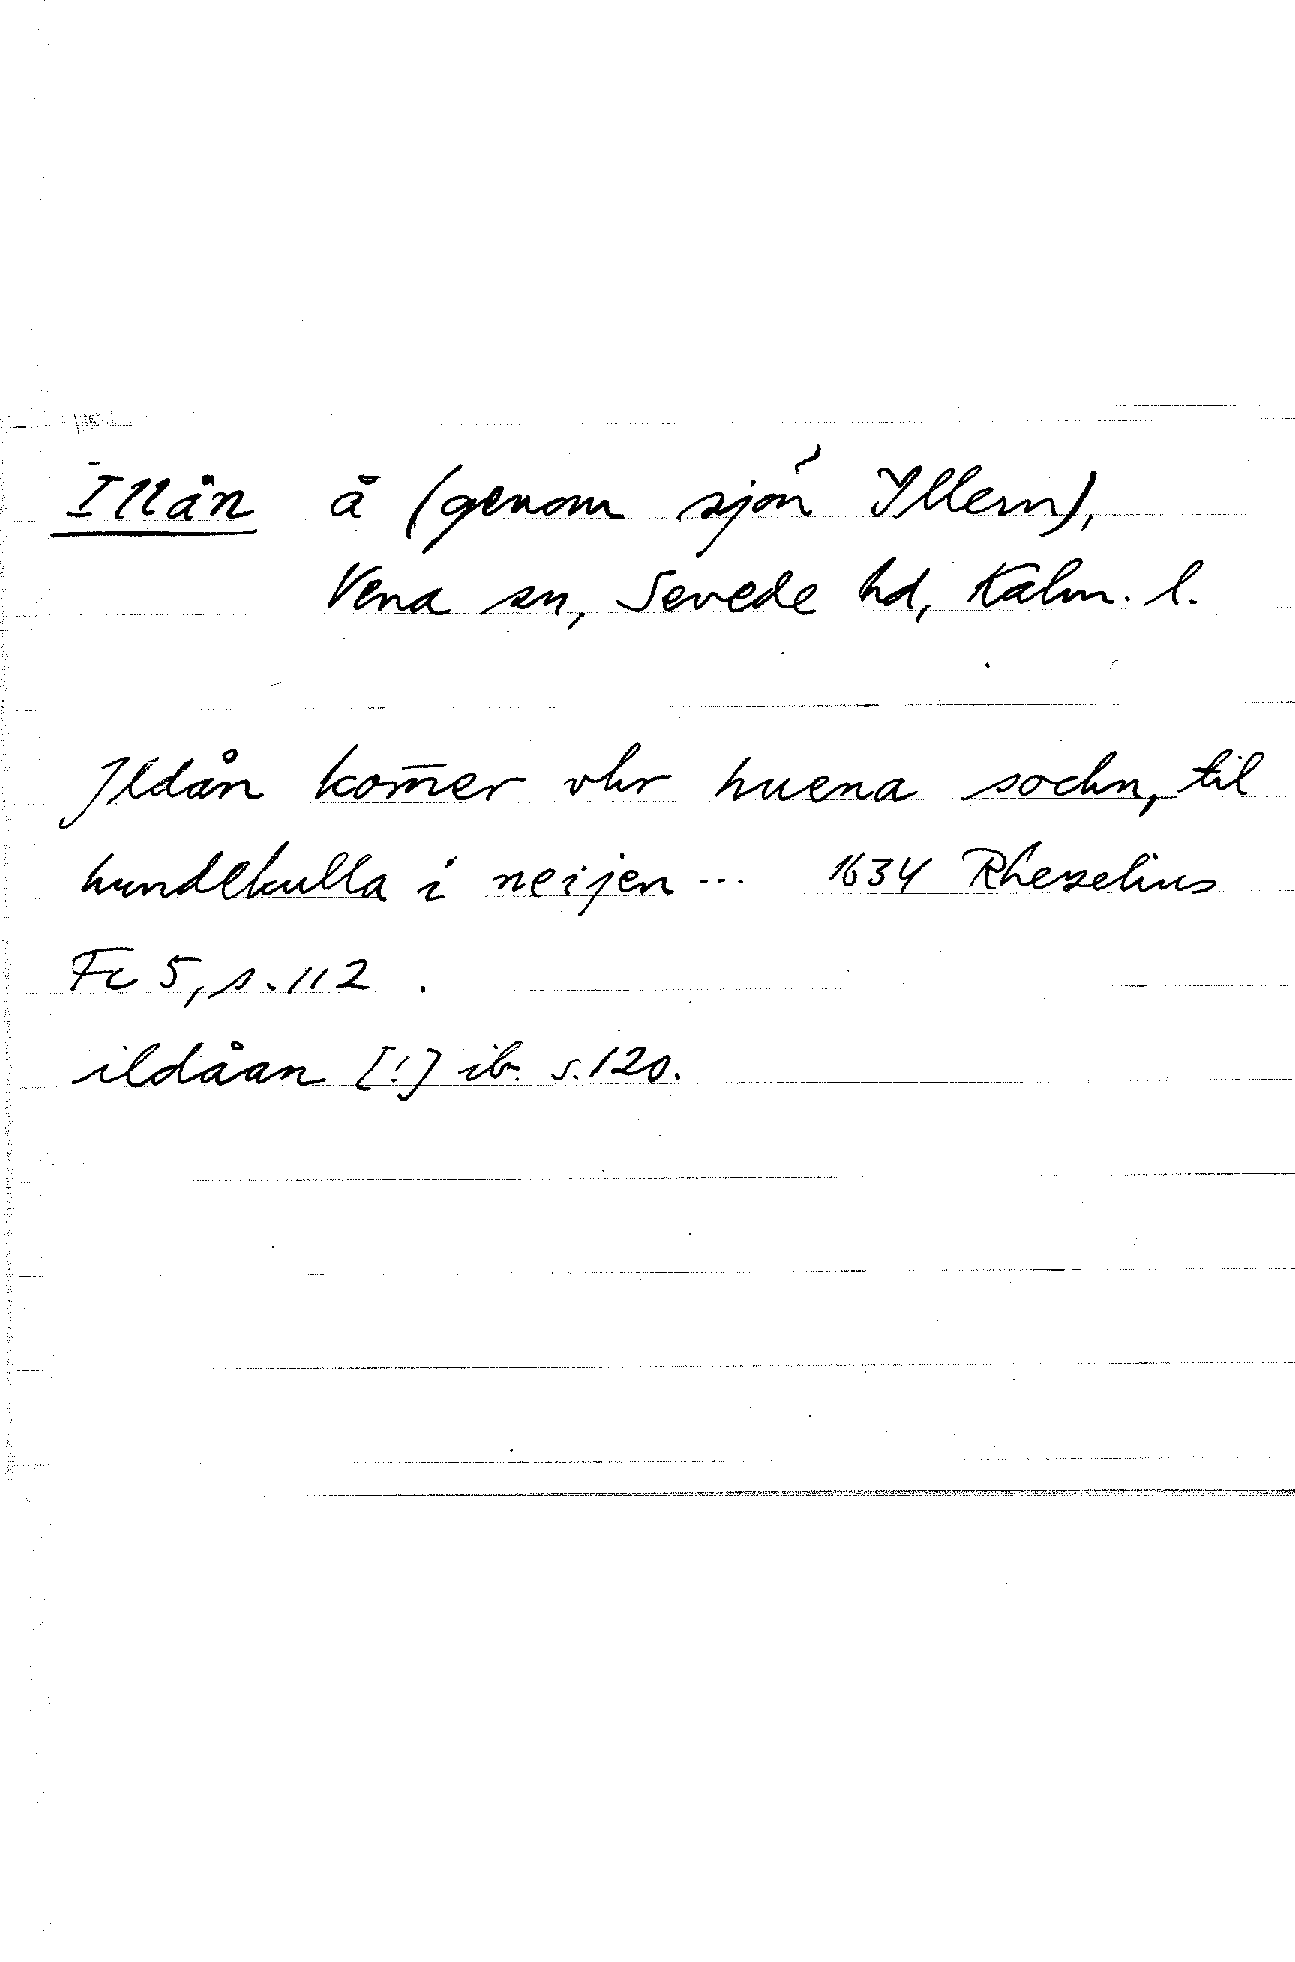 Illån å (genom sjön Yllern),
Vena sn, Sevede hd, Kalm. l.
Jldån kom̄er vhr huena sochn, til
hundlkulla i neijen... 1634 Rhezelius
Fc 5, s. 112.
ildåan [!] ib. s. 120.